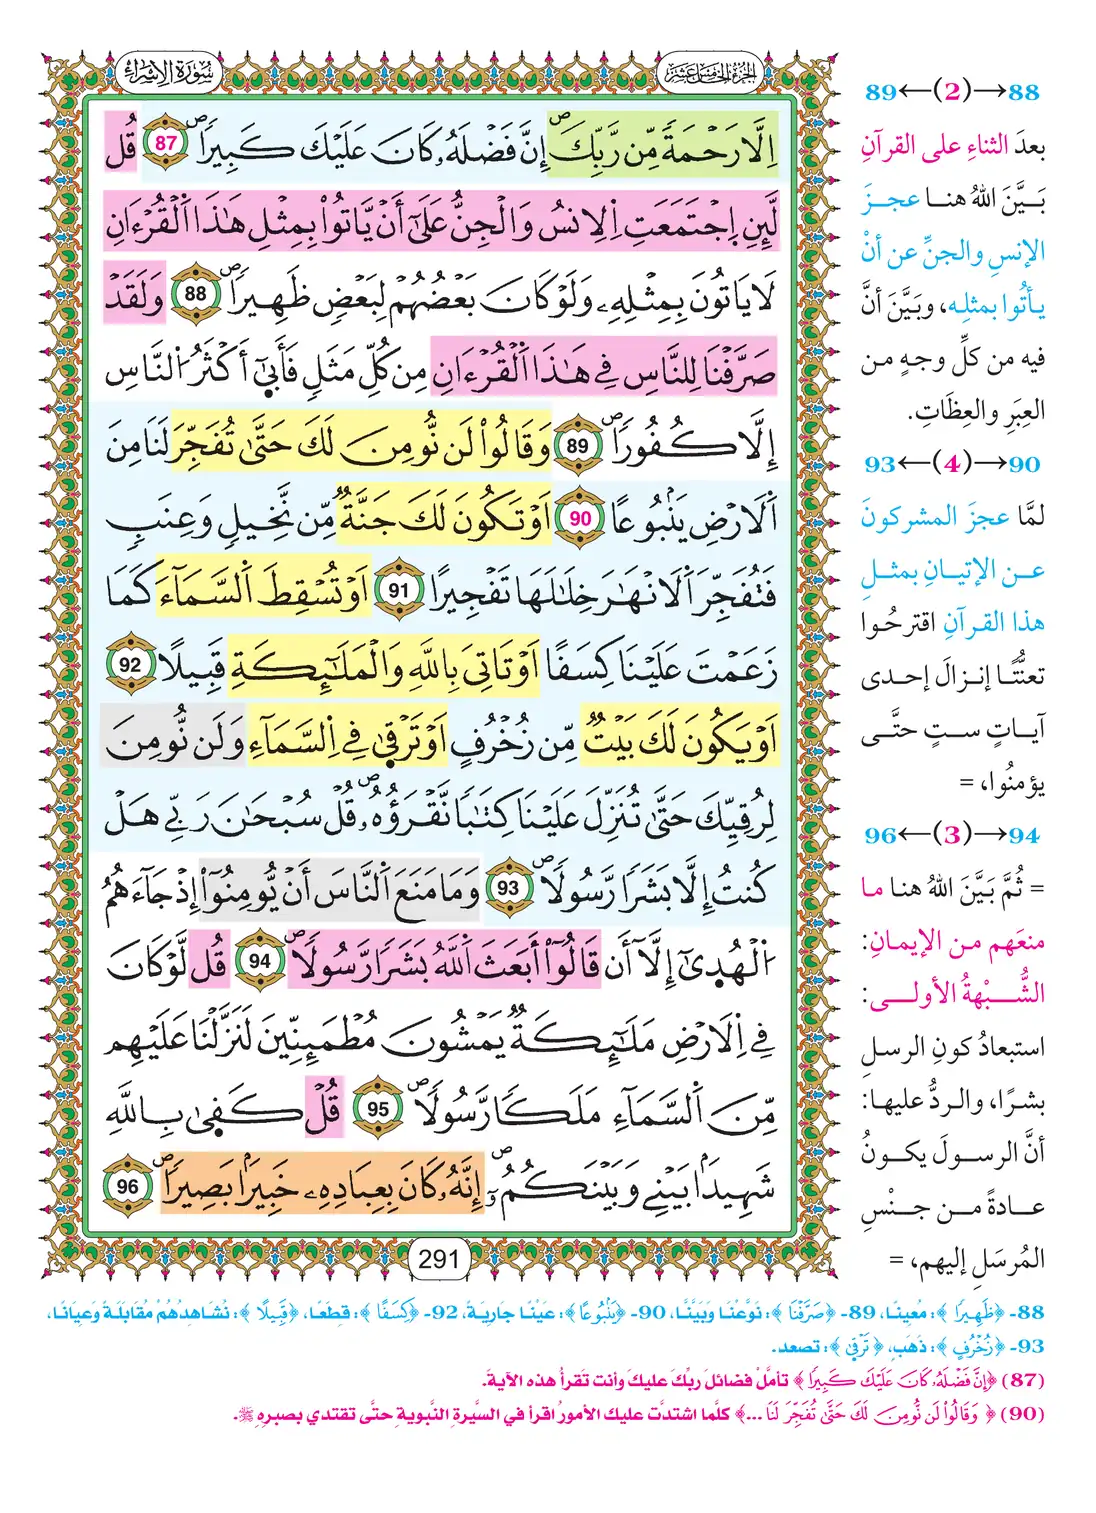 سُورَةُ الإِسْرَاءِ
الجُزْءُ الخَامِسَ عَشَرَ
اِلَّا رَحْمَةً مِّن رَّبِّكَۖ إِنَّ فَضْلَهُۥ كَانَ عَلَيْكَ كَبِيراٗۖ 87 قُل
لَّئِنِ اِ۪جْتَمَعَتِ اِ۬لِانسُ وَالْجِنُّ عَلَىٰٓ أَنْ يَّاتُواْ بِمِثْلِ هَٰذَا اَ۬لْقُرْءَانِ
لَا يَاتُونَ بِمِثْلِهِۦ وَلَوْ كَانَ بَعْضُهُمْ لِبَعْضٖ ظَهِيراٗۖ 88 وَلَقَدْ
صَرَّفْنَا لِلنَّاسِ فِے هَٰذَا اَ۬لْقُرْءَانِ مِن كُلِّ مَثَلٖ فَأَبَىٰٓ أَكْثَرُ اُ۬لنَّاسِ
إِلَّا كُفُوراٗۖ 89 وَقَالُواْ لَن نُّومِنَ لَكَ حَتَّىٰ تُفَجِّرَ لَنَا مِنَ
اَ۬لَارْضِ يَنۢبُوعاً 90 اَوْ تَكُونَ لَكَ جَنَّةٞ مِّن نَّخِيلٖ وَعِنَبٖ
فَتُفَجِّرَ اَ۬لَانْهَٰرَ خِلَٰلَهَا تَفْجِيراً 91 اَوْ تُسْقِطَ اَ۬لسَّمَآءَ كَمَا
زَعَمْتَ عَلَيْنَا كِسَفاً اَوْ تَاتِيَ بِاللَّهِ وَالْمَلَٰٓئِكَةِ قَبِيلاً 92
اَوْ يَكُونَ لَكَ بَيْتٞ مِّن زُخْرُفٍ اَوْ تَرْقَىٰ فِے اِ۬لسَّمَآءِ وَلَن نُّومِنَ
لِرُقِيِّكَ حَتَّىٰ تُنَزِّلَ عَلَيْنَا كِتَٰباٗ نَّقْرَؤُهُۥۖ قُلْ سُبْحَانَ رَبِّے هَلْ
كُنتُ إِلَّا بَشَراٗ رَّسُولاٗۖ 93 وَمَا مَنَعَ اَ۬لنَّاسَ أَنْ يُّومِنُوٓاْ إِذْ جَآءَهُمُ
اُ۬لْهُد۪ىٰٓ إِلَّآ أَن قَالُوٓاْ أَبَعَثَ اَ۬للَّهُ بَشَراٗ رَّسُولاٗۖ 94 قُل لَّوْ كَانَ
فِے اِ۬لَارْضِ مَلَٰٓئِكَةٞ يَمْشُونَ مُطْمَئِنِّينَ لَنَزَّلْنَا عَلَيْهِم
مِّنَ اَ۬لسَّمَآءِ مَلَكاٗ رَّسُولاٗۖ 95 قُلْ كَف۪ىٰ بِاللَّهِ
شَهِيداَۢ بَيْنِے وَبَيْنَكُمُۥٓۖ إِنَّهُۥ كَانَ بِعِبَادِهِۦ خَبِيراَۢ بَصِيراٗۖ 96
291
88→(2)←89
بعدَ الثناءِ على القرآنِ
بَيَّنَ اللهُ هنا عجزَ
الإنسِ والجنِّ عن أنْ
يأتُوا بمثلِه، وبَيَّنَ أنَّ
فيه من كلِّ وجهٍ من
العِبَرِ والعِظَاتِ.
90→(4)←93
لمَّا عجزَ المشركونَ
عن الإتيانِ بمثلِ
هذا القرآنِ اقترحُوا
تعنُّتًا إنزالَ إحدى
آياتٍ ستٍ حتَّى
يؤمنُوا، =
94→(3)←96
= ثُمَّ بَيَّنَ اللهُ هنا ما
منعَهم من الإيمانِ:
الشُّبْهةُ الأولى:
استبعادُ كونِ الرسلِ
بشرًا، والردُّ عليها:
أنَّ الرسولَ يكونُ
عادةً من جنْسِ
المُرسَلِ إليهم، =
88- ﴿ظَهِيراٗ﴾: مُعِينًا، 89- ﴿صَرَّفْنَا﴾: نَوَّعْنَا وَبَيَّنَّا، 90- ﴿يَنۢبُوعاً﴾: عَيْنًا جَارِيَةً، 92- ﴿كِسَفاً﴾: قِطَعًا، ﴿قَبِيلاً﴾: نُشَاهِدُهُمْ مُقَابَلَةً وَعِيَانًا،
93- ﴿زُخْرُفٍ﴾: ذَهَبٍ، ﴿تَرْقَىٰ﴾: تصعد.
(87) ﴿إِنَّ فَضْلَهُۥ كَانَ عَلَيْكَ كَبِيراٗ﴾ تأمَّلْ فضائلَ ربِّكَ عليكَ وأنت تَقرأُ هذه الآيةَ.
(90) ﴿وَقَالُواْ لَن نُّومِنَ لَكَ حَتَّىٰ تُفَجِّرَ لَنَا ...﴾ كلَّما اشتدَّت عليك الأمورُ اقرأ في السِّيرةِ النَّبويةِ حتَّى تقتدي بصبرِه ﷺ.